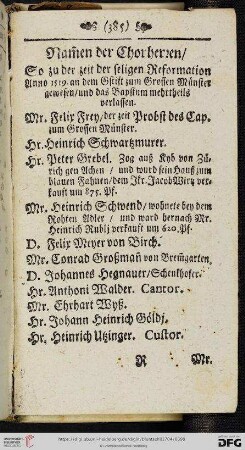 (385)
Namen der Chorherren/
So zu der zeit der seligen Reformation
Anno 1519. an dem Gstift zum Grossen Münster
gewesen/und das Bapstum mehrtheils
verlassen.
Mr. Felix Frey/der zeit Probst des Cap.
zum Grossen Münster.
Hr. Heinrich Schwartzmurer.
Hr. Peter Grebel. Zog auß Kyb von Zü-
rich gen Achen / und ward sein Hauß zum
blauen Fahnen/dem Jkr. Jacob Wirtz ver-
kauft um 875. Pf.
Mr. Heinrich Schwend/wohnete bey dem
Rohten Adler / und ward hernach Mr.
Heinrich Rublj verkauft um 620. Pf.
D. Felix Meyer von Birch.
Mr. Conrad Großmañ von Bremgarten.
D. Johannes Hegnauer/Schenkhofer.
Hr. Anthoni Walder. Cantor.
Mr. Ehrhart Wyß.
Hr. Johann Heinrich Göldj.
Hr. Heinrich Utzinger. Custor.
R Mr.
DFG